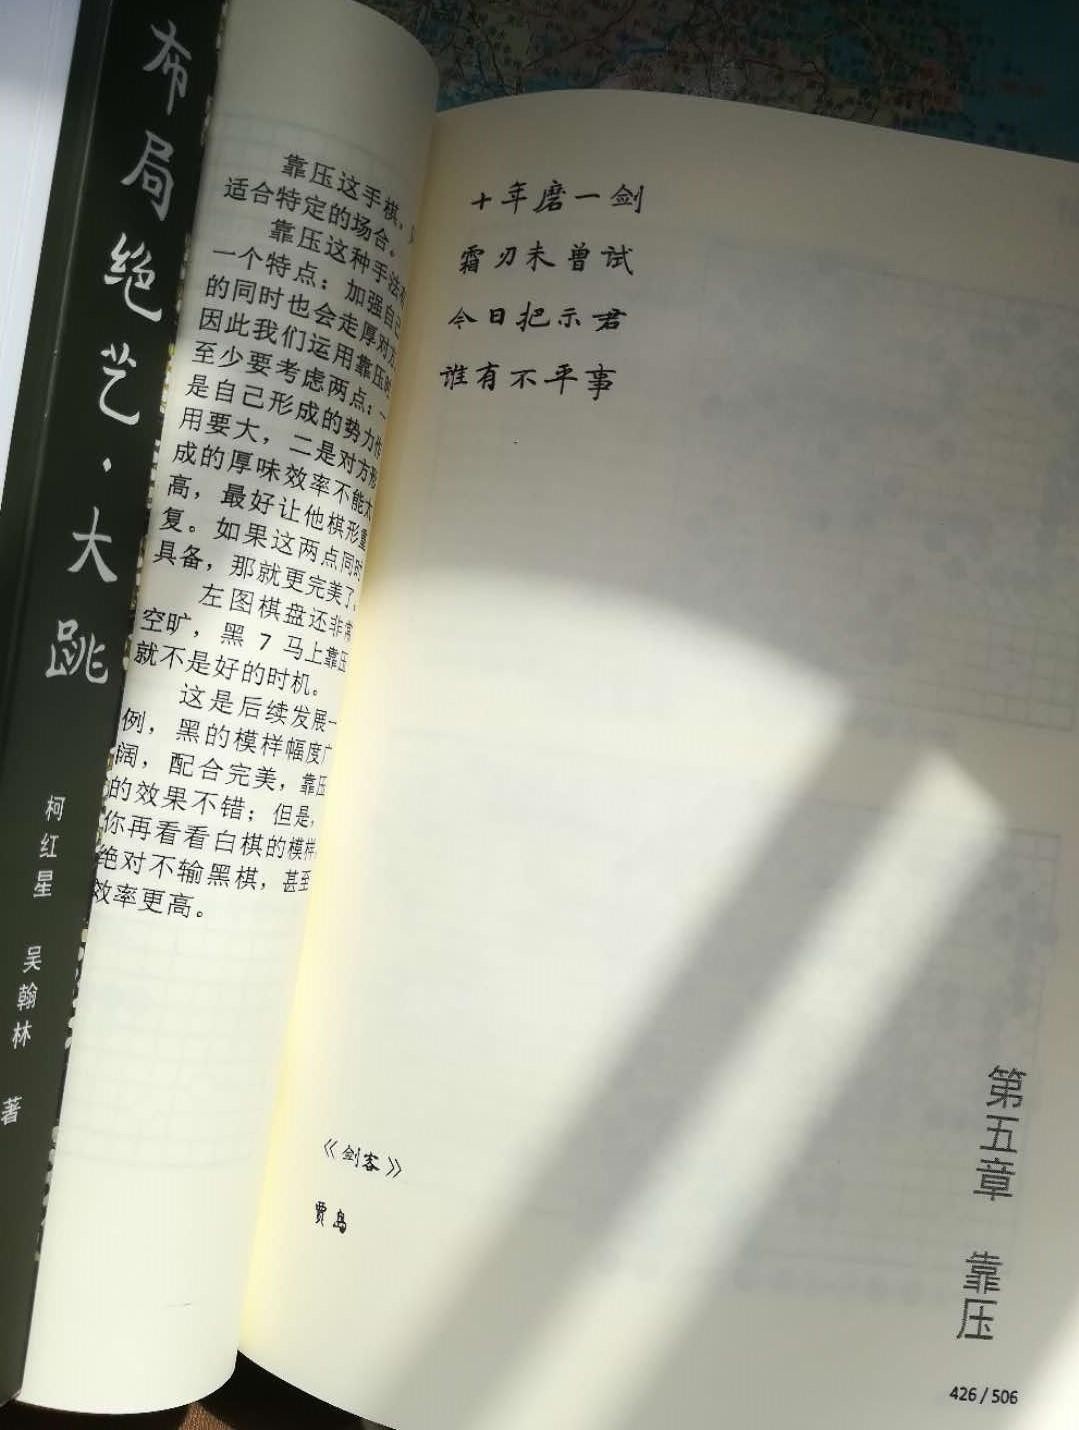 布局绝艺·大跳
柯红星 吴翰林 著
靠压这手棋，
适合特定的场合。
靠压这种手法
一个特点：加强自己
的同时也会走厚对方
因此我们运用靠压
至少要考虑两点：一
是自己形成的势力作
用要大，二是对方形
成的厚味效率不能太
高，最好让他棋形重
复。如果这两点同时
具备，那就更完美了。
左图棋盘还非常
空旷，黑 7 马上靠压
就不是好的时机。
这是后续发展一
例，黑的模样幅度广
阔，配合完美，靠压
的效果不错；但是，
你再看看白棋的模样
绝对不输黑棋，甚至
效率更高。
十年磨一剑
霜刃未曾试
今日把示君
谁有不平事
《剑客》
贾岛
第五章 靠压
426 / 506